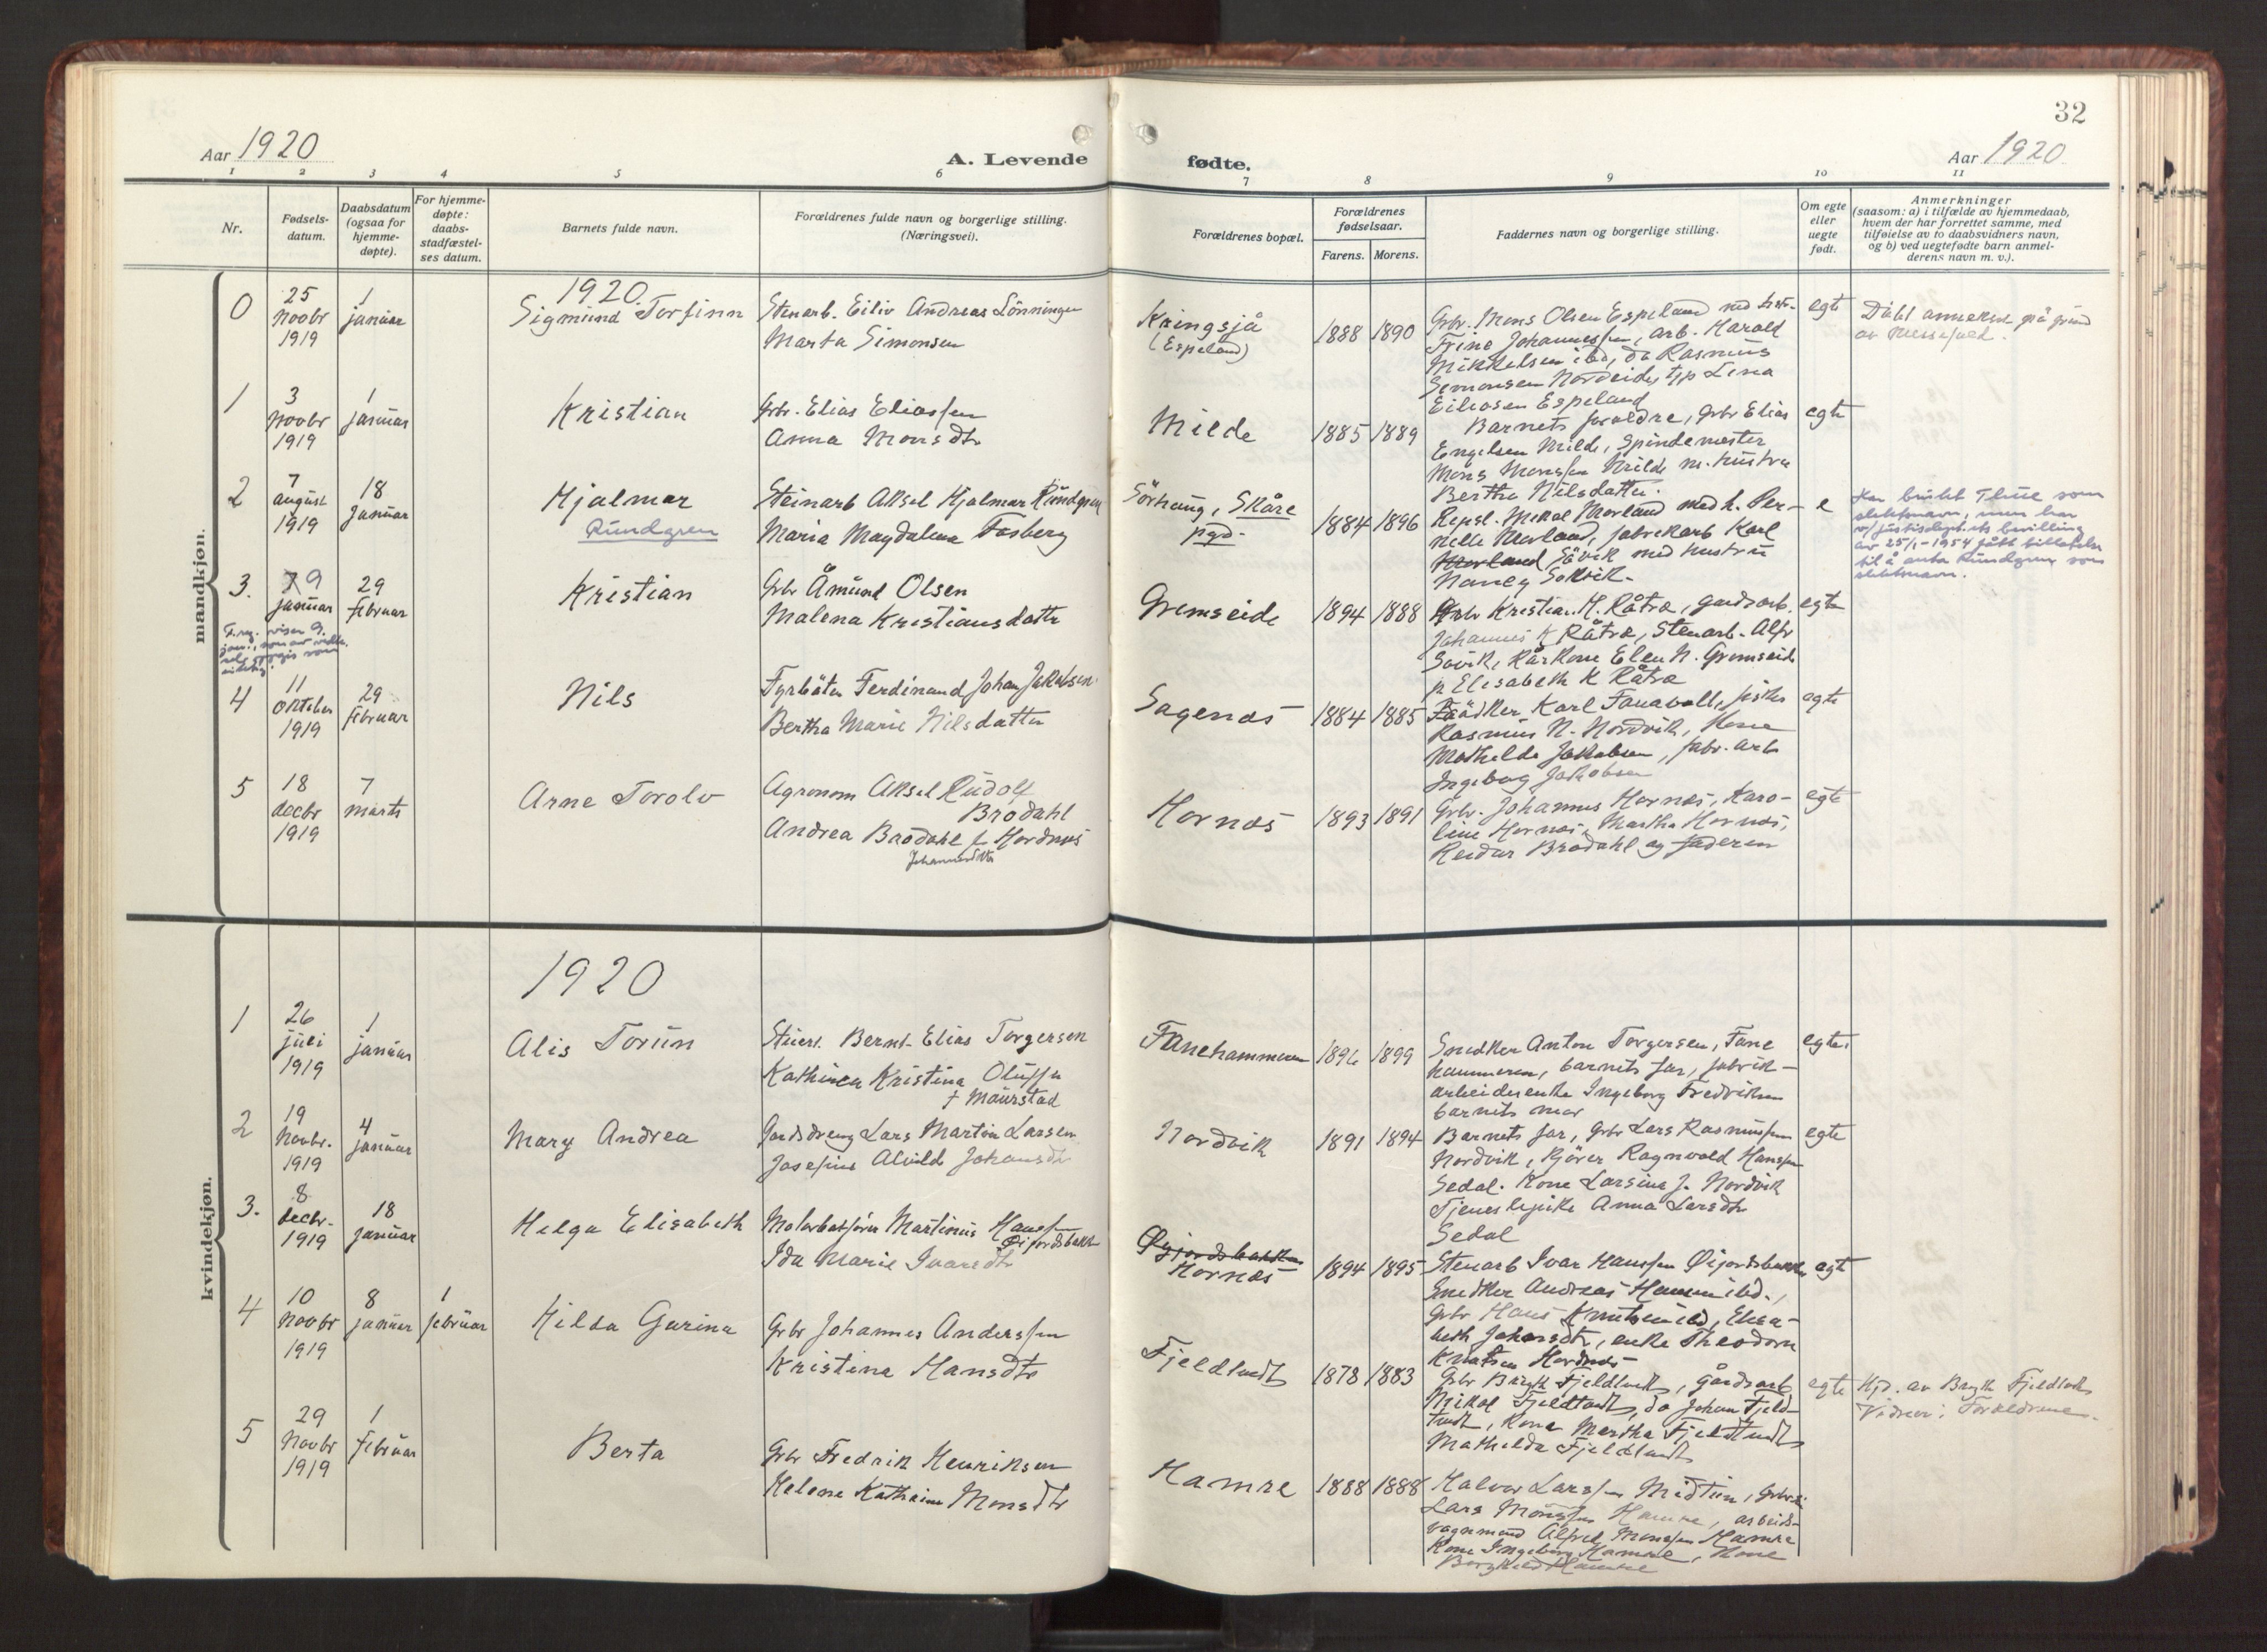 32
Aar 1920
A. Levende
fødte.
Aar 1920
1 2 3 4 5 6 7 8 9 10 11
Nr.
Fødsels-
datum.
Daabsdatum
(ogsaa for
hjemme-
døpte).
For hjemme-
døpte:
daabs-
stadfæstel-
ses datum.
Barnets fulde navn.
Forældrenes fulde navn og borgerlige stilling.
(Næringsvei).
Forældrenes bopæl.
Forældrenes
fødselsaar.
Farens. Morens.
Faddernes navn og borgerlige stilling.
Om egte
eller
uegte
født.
Anmerkninger
(saasom: a) i tilfælde av hjemmedaab,
hvem der har forrettet samme, med
tilføielse av to daabsvidners navn,
og b) ved uegtefødte barn anmel-
derens navn m. v.).
mandkjøn.
1920
0
25
Novbr
1919
1
januar
Sigmund Torfinn
Stenarb. Eiliv Andreas Lönningen
Marta Simonsen
Kringsjå
(Espeland)
1888 1890
Grbr. Mons Olsen Espeland med hstr.
Trine Johannessen, arb. Harald
Mikkelsen ibd, do Rasmus
Simonsen Nordeide, tjp Lina
Eilivsen Espeland
egte
1
3
Novbr
1919
1
januar
Kristian
Grbr. Elias Eliassen
Anna Monsdtr
Milde
1885 1889
Barnets foreldre, Grbr Elias
Engelsen Milde, Spindemester
Mons Monssen Milde m. hustru
Bertha Nilsdatter.
egte
2
7
august
1919
18
januar
Hjalmar
Rundgren
Steinarb Aksel Hjalmar Rundgren
Maria Magdalena Fosberg
Sörhaug, Skåre
pgd.
1884 1896
Repsl. Mikal Morland med h. Per-
nelle Morland, fabrikarb Karl
Morland Sövik med hustru
Nancy Sövik
e
Har brukt Thue som
slektsnavn, men har
v/ justisdept.ets bevilling
av 25/1-1954 fått tillatelse
til å anta Rundgren som
slektsnavn.
3.
9
januar
29
februar
Kristian
Grbr Åmund Olsen
Malena Kristiansdatter
Grimseide
1894 1888
Grbr Kristian M. Råtræ, gardsarb.
Johannes K Råtræ, Stenarb. Alfr
Sövik, Kårkone Elen N. Grimseid
p Elisabeth K Råtræ
egte
4
11
oktober
1919
29
februar
Nils
Fyrböter Ferdinand Johan Jakobsen
Bertha Marie Nilsdatter
Sagenæs
1884 1885
Karl Fanavoll, fisker
Rasmus N. Nordvik, Kone
Mathilde Jakobsen, fabr. arb
Ingeborg Jakobsen
egte
5
18
decbr
1919
7
marts
Arne Torolv
Agronom Aksel Rudolf
Brödahl
Andrea Brödahl f Hordnæs
Johannesdtr
Hornæs
1893 1891
Grbr. Johannes Hornæs, Karo-
line Hornæs, Martha Hornæs,
Reidar Brödahl og faderen
egte
kvindekjøn.
1920
1
26
juli
1919
1
januar
Alis Torun
Bernt Elias Torgersen
Kathinca Kristina Olufsen
f Maurstad
Fanehammeren
1896 1899
Snedker Anton Torgersen, Fane
hammeren, barnets far, fabrik-
arbeiderenke Ingeborg Fredriksen
barnets mor
egte
2
19
Novbr.
1919
4
januar
Mary Andrea
Gardsdreng Lars Martin Larsen
Josefine Alvilde Johansdtr
Nordvik
1891 1894
Barnets far, Grbr Lars Rasmussen
Nordvik, Kjörer Ragnvald Hanssen
Sedal. Kone Larsina J. Nordvik
Tjenestepike Anna Larsdtr
Sedal
egte
3.
8
decbr.
1919
18
januar
Helga Elisabeth
Motorbåtförer Martinus Hanssen
Øifjordsbakk
Ida Marie Ivarsdtr
Hornæs
1894 1895
Stenarb Ivar Hanssen Øifjordsbakken
Snedker Andreas Hanssen ibd.,
Grbr Hans Knutsen ibd, Elisa-
beth Johansdtr, enke Theodora
Knutsen Hordnæs
egte
4
10
Novbr
1919
8
januar
1
februar
Hilda Gurina
Grbr Johannes Anderssen
Kristina Hansdtr
Fjeldtvedt
1878 1883
Grbr Birgith Fjeldtvedt, gårdsarb
Nikol Fjeldtvedt, do Johan Fjeld-
tvedt, Kone Martha Fjeldtvedt
Mathilde Fjeldtvedt
egte
Hjd. av Fjeldtvedt
Vidner: Foreldrene.
5
29
Novbr
1919
1
februar
Berta
Grbr Fredrik Henriksen
Helene Kathrine Monsdtr
Hamre
1888 1888
Halvor Larssen Midtun, Grbr
Lars Monssen Hamre, arbeids-
vognmand Alfred Monssen Hamre
Kone Ingeborg Hamre, Kone
Borghild Hamre